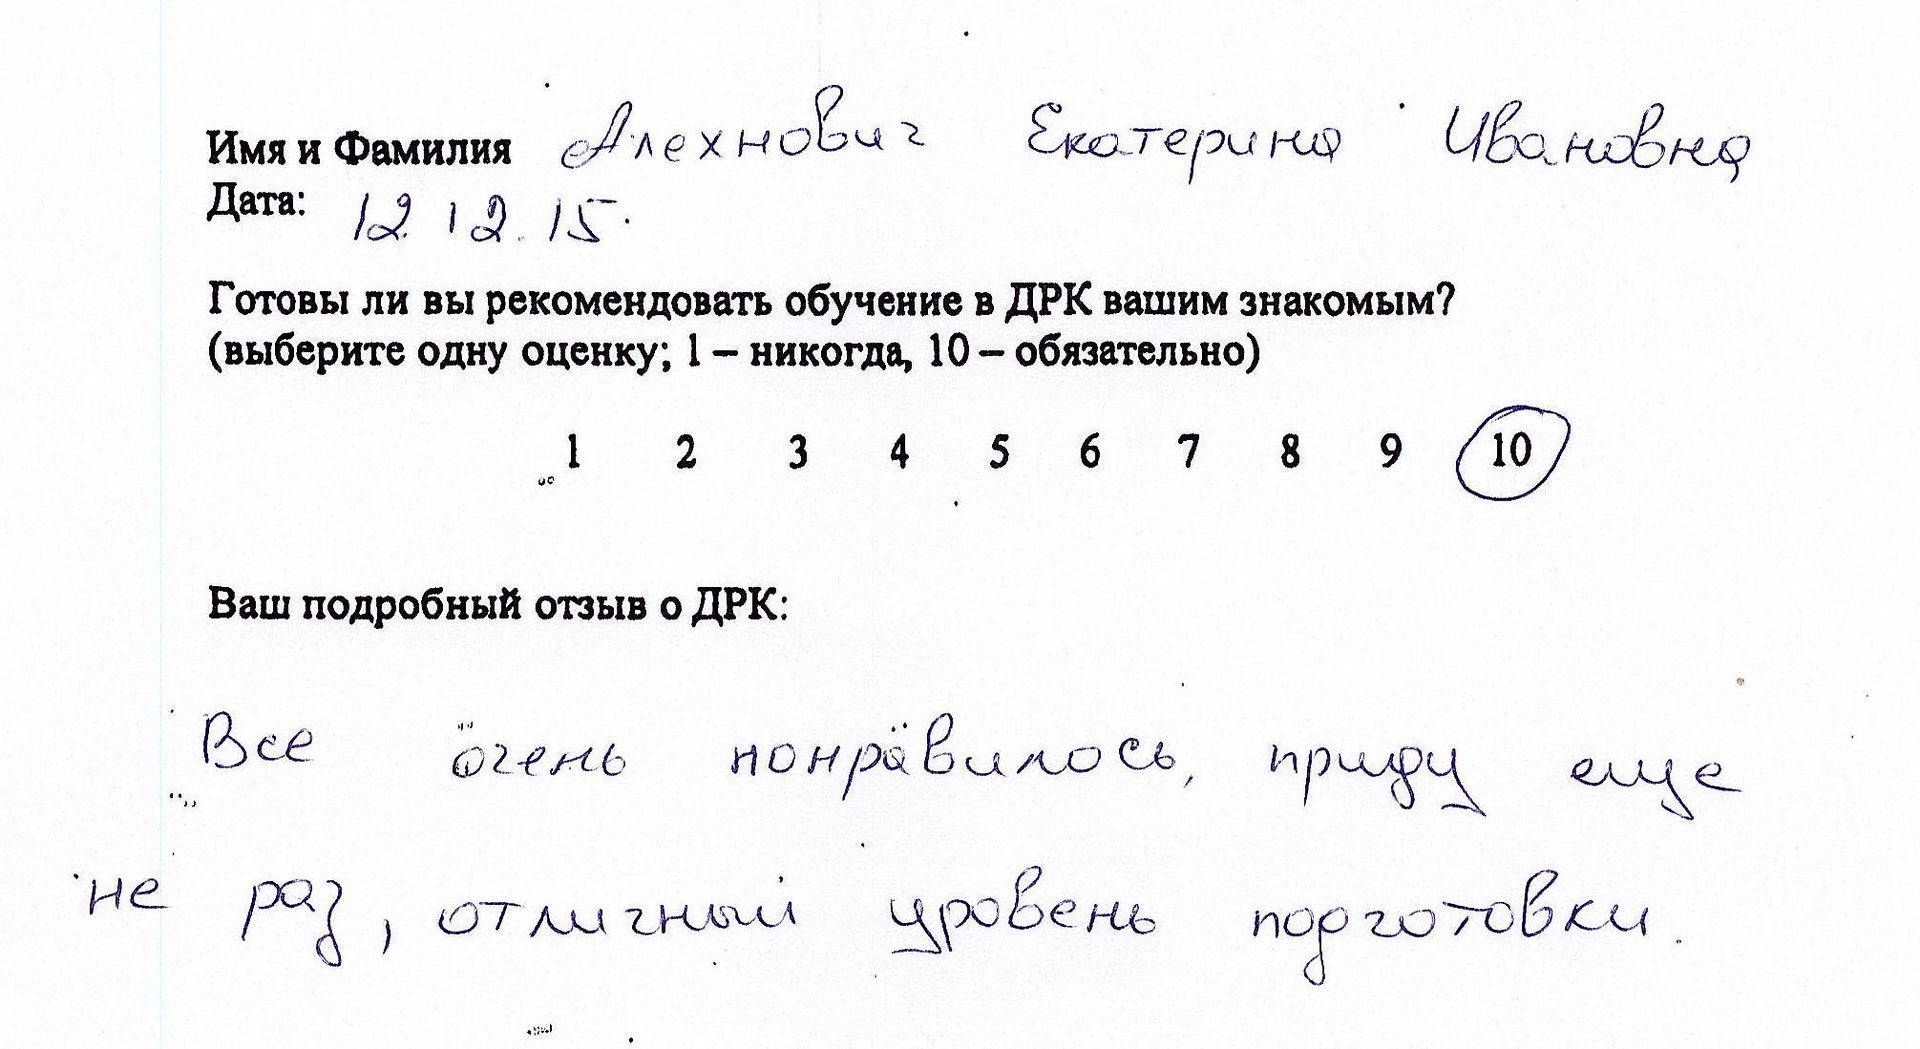 Имя и Фамилия Алехнович Екатерина Ивановна
Дата: 12.12.15.
Готовы ли вы рекомендовать обучение в ДРК вашим знакомым?
(выберите одну оценку; 1 – никогда, 10 – обязательно)
1 2 3 4 5 6 7 8 9 10
Ваш подробный отзыв о ДРК:
Все очень понравилось, приду еще
не раз, отличный уровень подготовки.